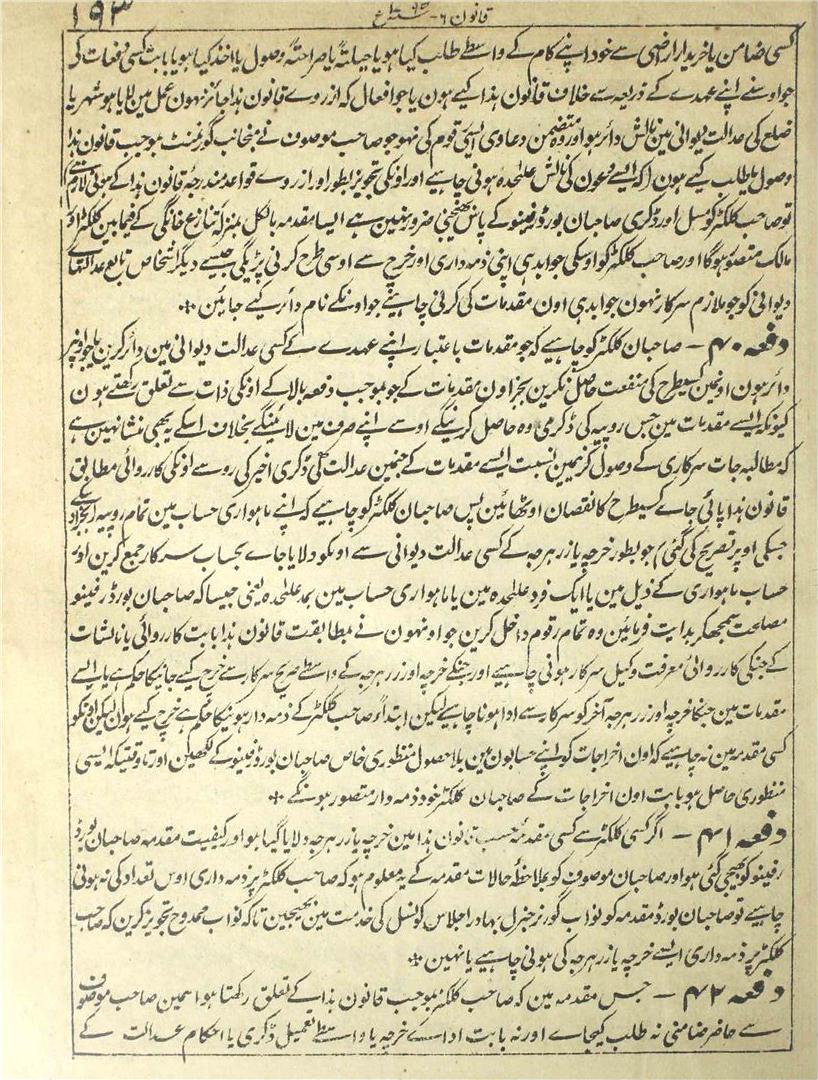 ۱۹۳
قانون ۶ -
کسی ضامن یا خریدار اراضی سے خود اپنے کام کے واسطے طلب کیا ہو یا حیلۃً یا صراحتہً وصول یا اخذ کیا ہو یا بابت کسی دفعات کی
جو اوسنے اپنے عہدے کے ذریعہ سے خلاف قانون ہذا کیے ہون یا جو افعال کہ از روے قانون ہذا جائز نہون عمل مین لایا ہو شہر یا
ضلع کی عدالت دیوانی مین نالش دائر ہو اور وہ متضمن دعاوی ایسی قوم کی نہو جو صاحب موصوف نے منجانب گورنمنٹ بموجب قانون ہذا
وصول یا طلب کیے ہون (کہ ایسے دعون کی نالش علٰحدہ ہونی چاہیے اور اونکی تجویز بطور اور از روے قواعد مندرجہ قانون ہذا کے ہونی لازم ہے)
تو صاحب کلکٹر کو نسل اور ڈکری صاحبان بورڈ رفینو کے پاس بھیجنی ضرور نہین ہے ایسا مقدمہ بالکل بمنزلہ تنازع خانگی کے فیما بین کلکٹر اور
مالک متصور ہوگا اور صاحب کلکٹر کو اوسکی جوابدہی اپنی ذمہ داری اور خرچ سے اوسی طرح کرنی پڑیگی جیسے دیگر اشخاص تابع عدالتہاے
دیوانی کو جو ملازم سرکار نہون جوابدہی اون مقدمات کی کرنی چاہیئے جو اونکے نام دائر کیے جایئن
دفعہ ۴۰ - صاحبان کلکٹر کو چاہیے کہ جو مقدمات باعتبار اپنے عہدے کے کسی عدالت دیوانی مین دائر کرین یا جو اونپر
دائر ہون اونمین کسیطرح کی منفعت حاصل نکرین بجز اون مقدمات کے جو بموجب دفعہ بالا کے اونکی ذات سے تعلق رکھتے ہون
کیونکہ ایسے مقدمات مین جس روپیہ کی ڈکری وہ حاصل کرینگے اوسے اپنے صرف مین لائینگے بخلاف اسکے یہ بھی منشا نہین ہے
کہ مطالبہ جات سرکاری کے وصول کرنیمین بنسبت ایسے مقدمات کے جنمین عدالت کی ڈکری اخیر کی رو سے اونکی کارروائی مطابق
قانون ہذا پائی جاے کسیطرح کا نقصان اوٹھائین پس صاحبان کلکٹر کو چاہیے کہ اپنے ماہواری حساب مین تمام روپیہ
جسکی اوپر تصریح کی گئی) جو بطور خرچہ یا زر ہرجہ کے کسی عدالت دیوانی سے اونکو دلایا جاے بحساب سرکار جمع کرین اور
حساب ماہواری کے ذیل مین یا ایک فرد علٰحدہ مین یا ماہواری حساب مین بمد علٰحدہ یعنی جیسا کہ صاحبان بورڈ رفینو
مصلحت سمجھکر ہدایت فرمائین وہ تمام رقوم داخل کرین جو اونہون نے بمطابقت قانون ہذا بابت کارروائی یا نالشات
کے جنکی کارروائی معرفت وکیل سرکار ہونی چاہیے اور جنکے خرچہ اور زر ہرجہ کے واسطے صریح سرکار سے خرچ کیے جانیکا حکم ہے یا ایسے
مقدمات مین جنکا خرچہ اور زر ہرجہ آخر کو سرکار سے ادا ہونا چاہیے لیکن ابتداءً صاحب کلکٹر کے ذمہ دار ہونیکا حکم ہے خرچ کیے ہون لیکن اونکو
کسی مقدمہ مین نہ چاہیے کہ اون اخراجات کو اپنے حسابون مین بلا حصول منظوری خاص صاحبان بورڈ رفینو کے لکھین اور تا وقتیکہ ایسی
منظوری حاصل ہو بابت اون اخراجات کے صاحبان کلکٹر خود ذمہ دار متصور ہونگے
دفعہ ۴۱ - اگر کسی کلکٹر سے کسی مقدمہ حسب قانون ہذا مین خرچہ یا زر ہرجہ دلایا گیا ہو اور کیفیت مقدمہ صاحبان بورڈ
رفینو کو بھیجی گئی ہو اور صاحبان موصوف کو بملاحظہ حالات مقدمہ کے یہ معلوم ہو کہ صاحب کلکٹر پر ذمہ داری اوس تعداد کی نہ ہونی
چاہیے تو صاحبان بورڈ مقدمہ کو نواب گورنر جنرل بہادر اجلاس کونسل کی خدمت مین بھیجین تا کہ نواب ممدوح تجویز کرین کہ صاحب
کلکٹر پر ذمہ داری ایسے خرچہ یا زر ہرجہ کی ہونی چاہیے یا نہین
دفعہ ۴۲ - جس مقدمہ مین کہ صاحب کلکٹر بموجب قانون ہذا کے تعلق رکھتا ہو اسمین صاحب موصوف
سے حاضر ضامنی نہ طلب کیجاے اور نہ بابت اداے خرچہ یا واسطے تعمیل ڈکری یا احکام عدالت کے